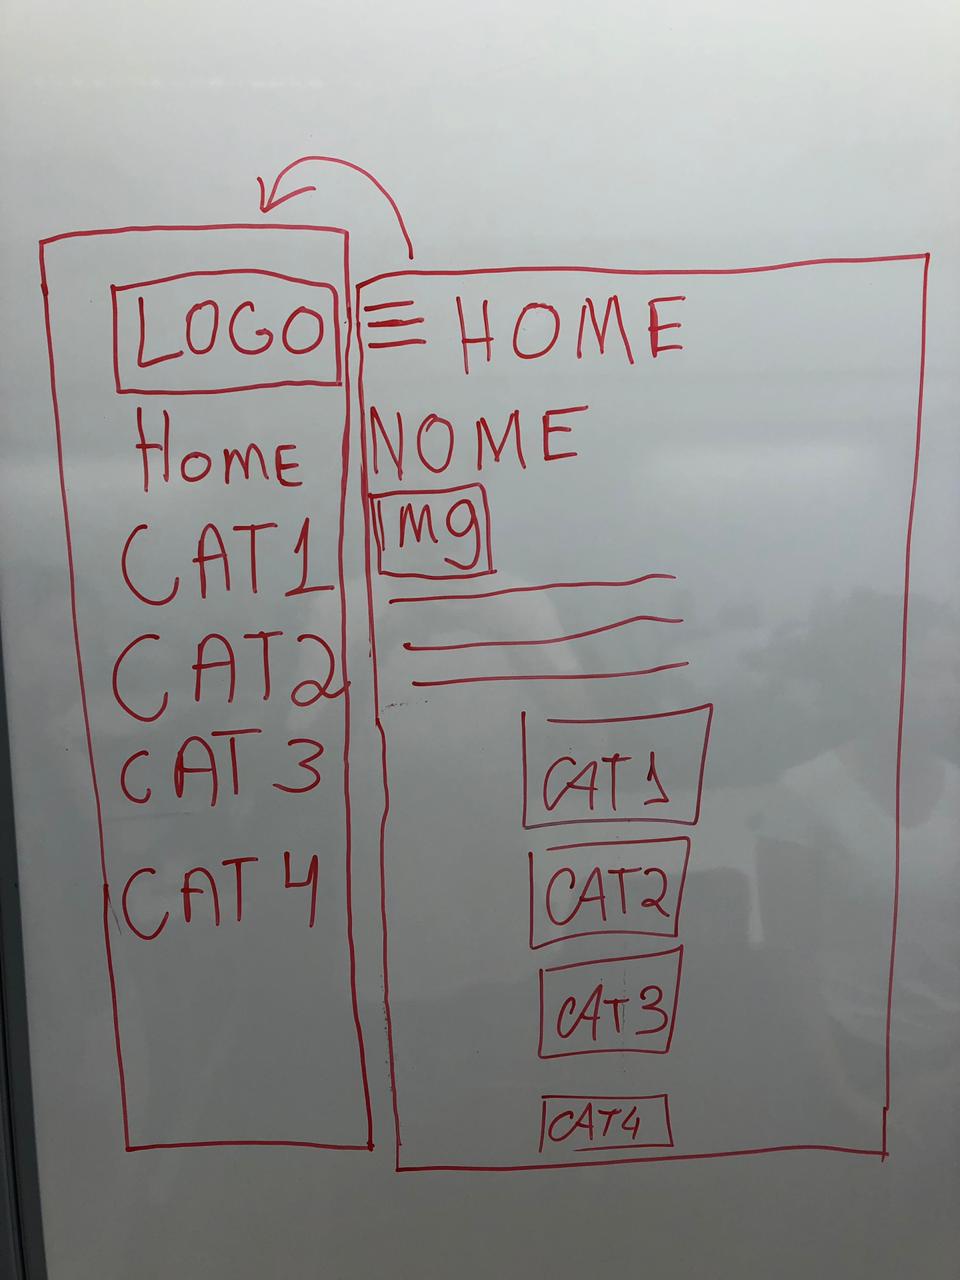 LOGO
Home
CAT1
CAT2
CAT 3
CAT 4
HOME
NOME
Img
CAT 1
CAT2
CAT3
CAT4